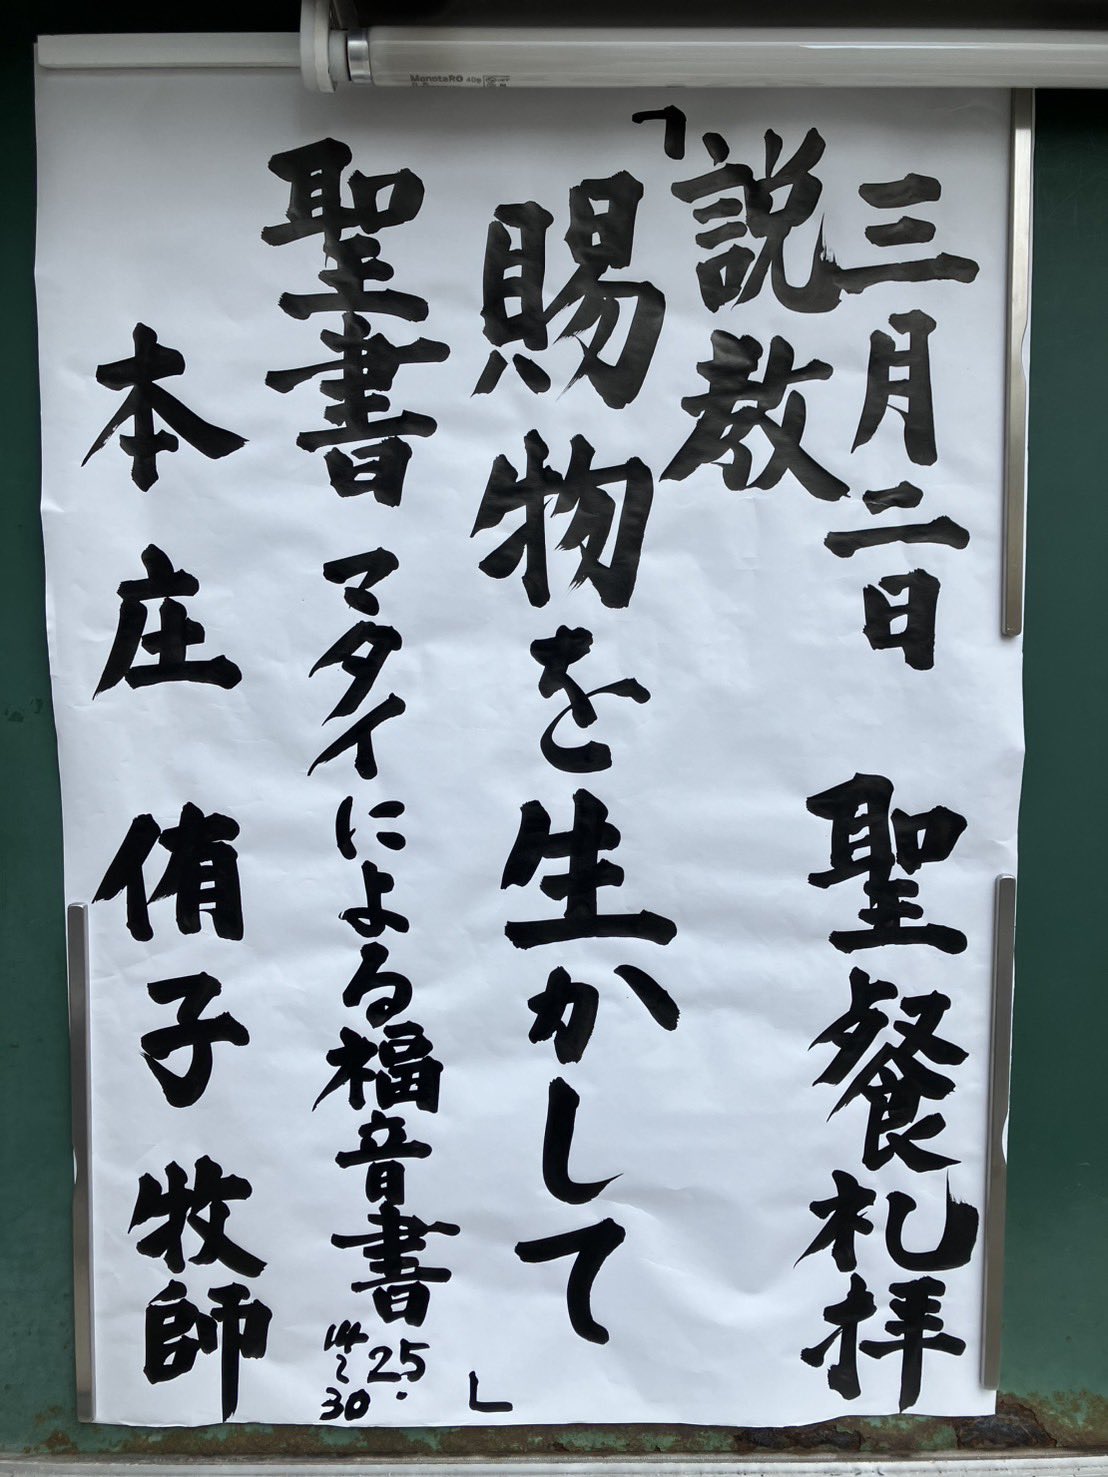 三月二日 聖餐礼拝
説教
「賜物を生かして」
聖書 マタイによる福音書25・14~30
本庄 侑子 牧師
MonotaRO 40形